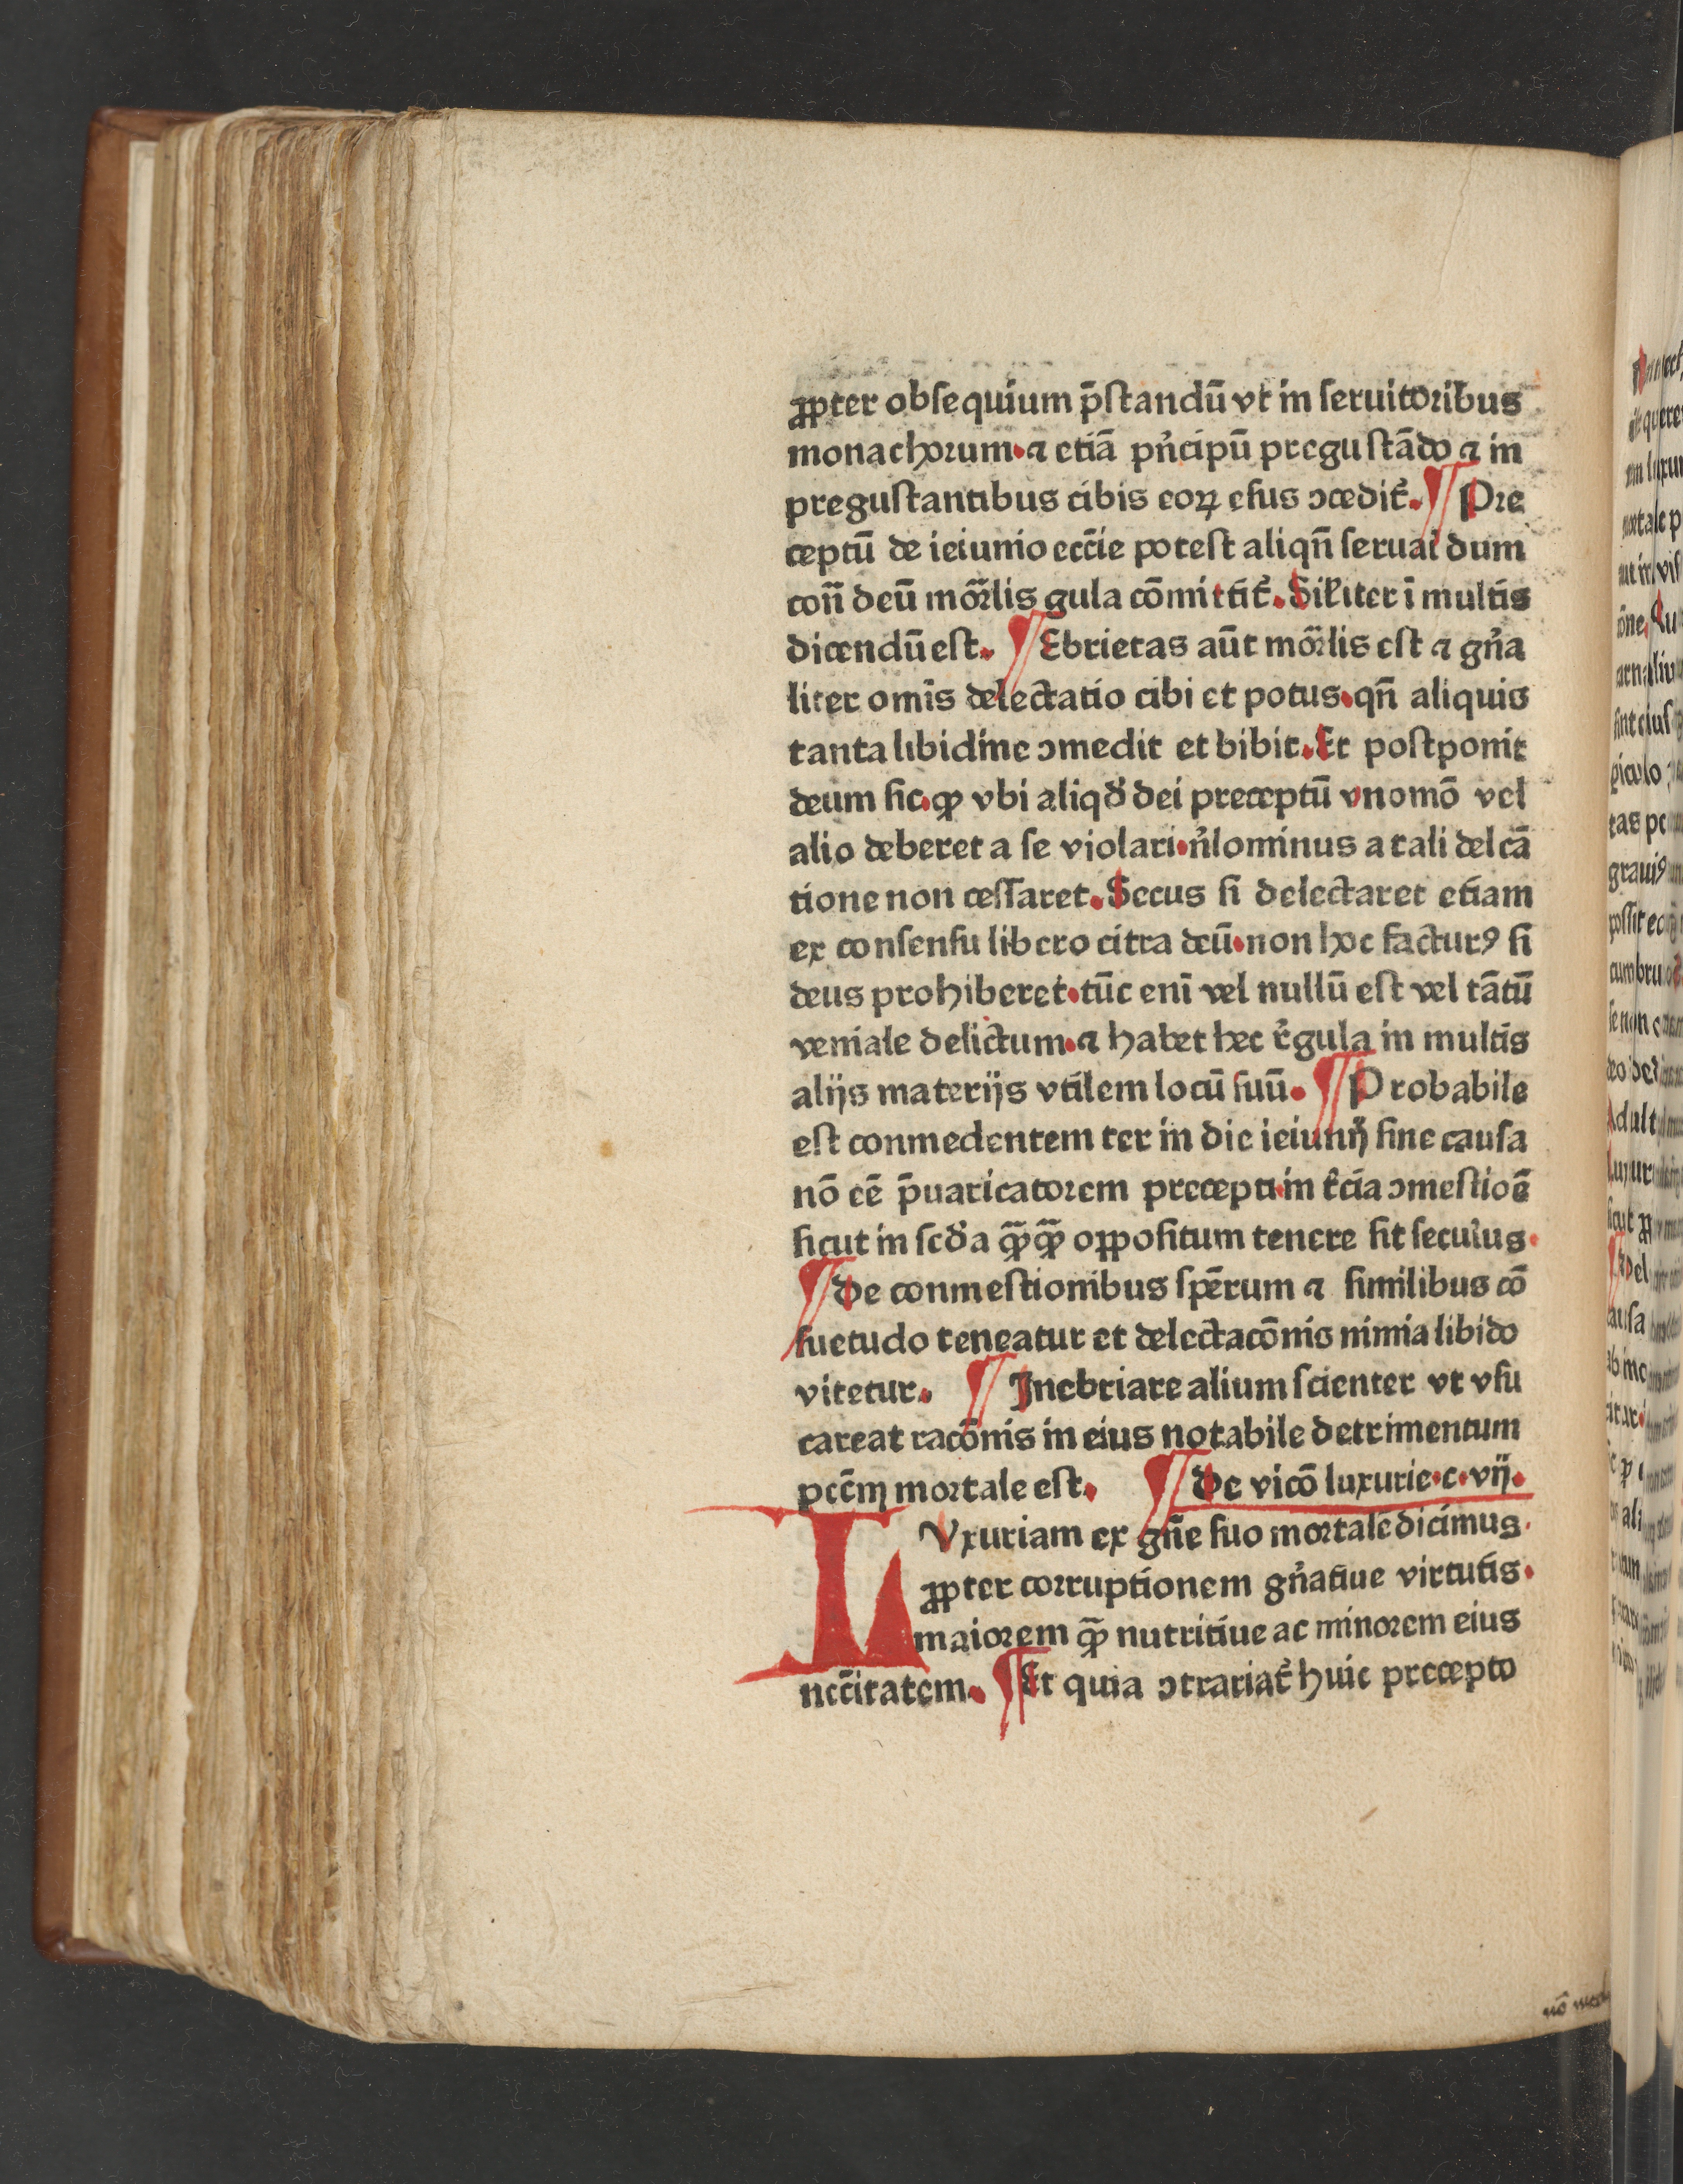 ꝓpter obſequium p̄ſtandū vt in ſeruitoribus
monachorum·⁊ etiā pn̄cipū preguſtādo ⁊ in
preguſtantibus cibis eoꝝ eſus ↄcedit᷑. ¶ Pre
ceptū de ieiunio ecc̄ie poteſt aliqn̄ ſeruari dum
con̄ deū mor̄lis gula cōmittit᷑. Sil̄iter ī multis
dicendū eſt. ¶ Ebrietas aūt mor̄lis eſt ⁊ gn̄a
liter omīs delectatio cibi et potus·qn̄ aliquis
tanta libidine ↄmedit et bibit. Et poſtponit
deum ſic·ꝙ vbi aliqd̄ dei preceptū vnomō vel
alio deberet a ſe violari·nl̄ominus a tali delcā
tione non ceſſaret. Secus ſi delectaret etiam
ex conſenſu libero citra deū·non hoc facturꝰ ſi
deus prohiberet·tūc enī vel nullū eſt vel tātū
veniale delictum·⁊ habet hec r̄gula in multis
alijs materijs vtilem locū ſuū. ¶ Probabile
eſt conmedentem ter in die ieiunij ſine cauſa
nō eē p̄uaricatorem precepti·in t̄cia ↄmeſtiōe
ſicut in ſcd̄a ꝙ̄ꝙ̄ oppoſitum tenere ſit ſecurius·
¶ De conmeſtionibus ſpērum ⁊ ſimilibus cō
ſuetudo teneatur et delectacōnis nimia libido
vitetur. ¶ Inebriare alium ſcienter vt vſu
careat racōnis in eius notabile detrimentum
pcc̄m mortale eſt. ¶ De vicō luxurie·c·vij.
LVxuriam ex gn̄e ſuo mortalē dicimus·
ꝓpter corruptionem gn̄atiue virtutis·
maiorem ꝙ̄ nutritiue ac minorem eius
necc̄itatem. ¶ Et quia ↄtrariat᷑ huic precepto